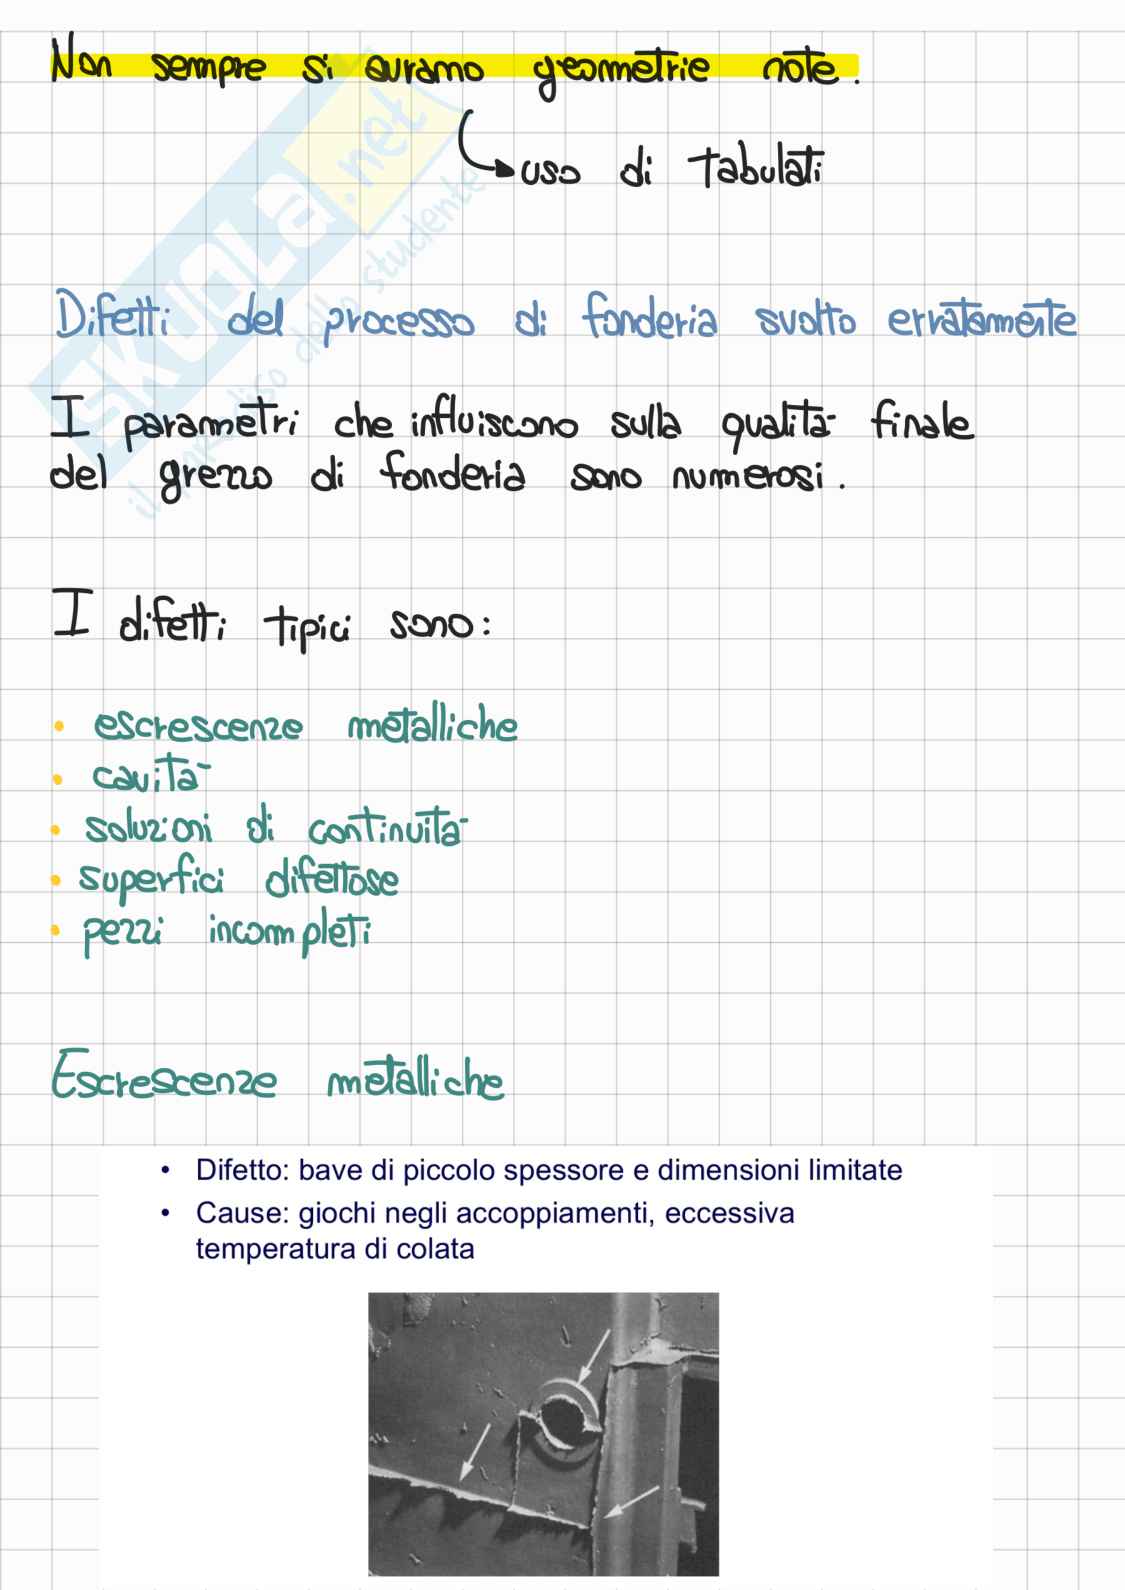 Non sempre si avranno geometrie note.
uso di tabulati
Difetti del processo di fonderia svolto erratamente
I parametri che influiscono sulla qualità finale
del grezzo di fonderia sono numerosi.
I difetti tipici sono:
• escrescenze metalliche
• cavità
• soluzioni di continuità
• superfici difettose
• pezzi incompleti
Escrescenze metalliche
• Difetto: bave di piccolo spessore e dimensioni limitate
• Cause: giochi negli accoppiamenti, eccessiva
temperatura di colata
SKUOLA.net
il paradiso dello studente